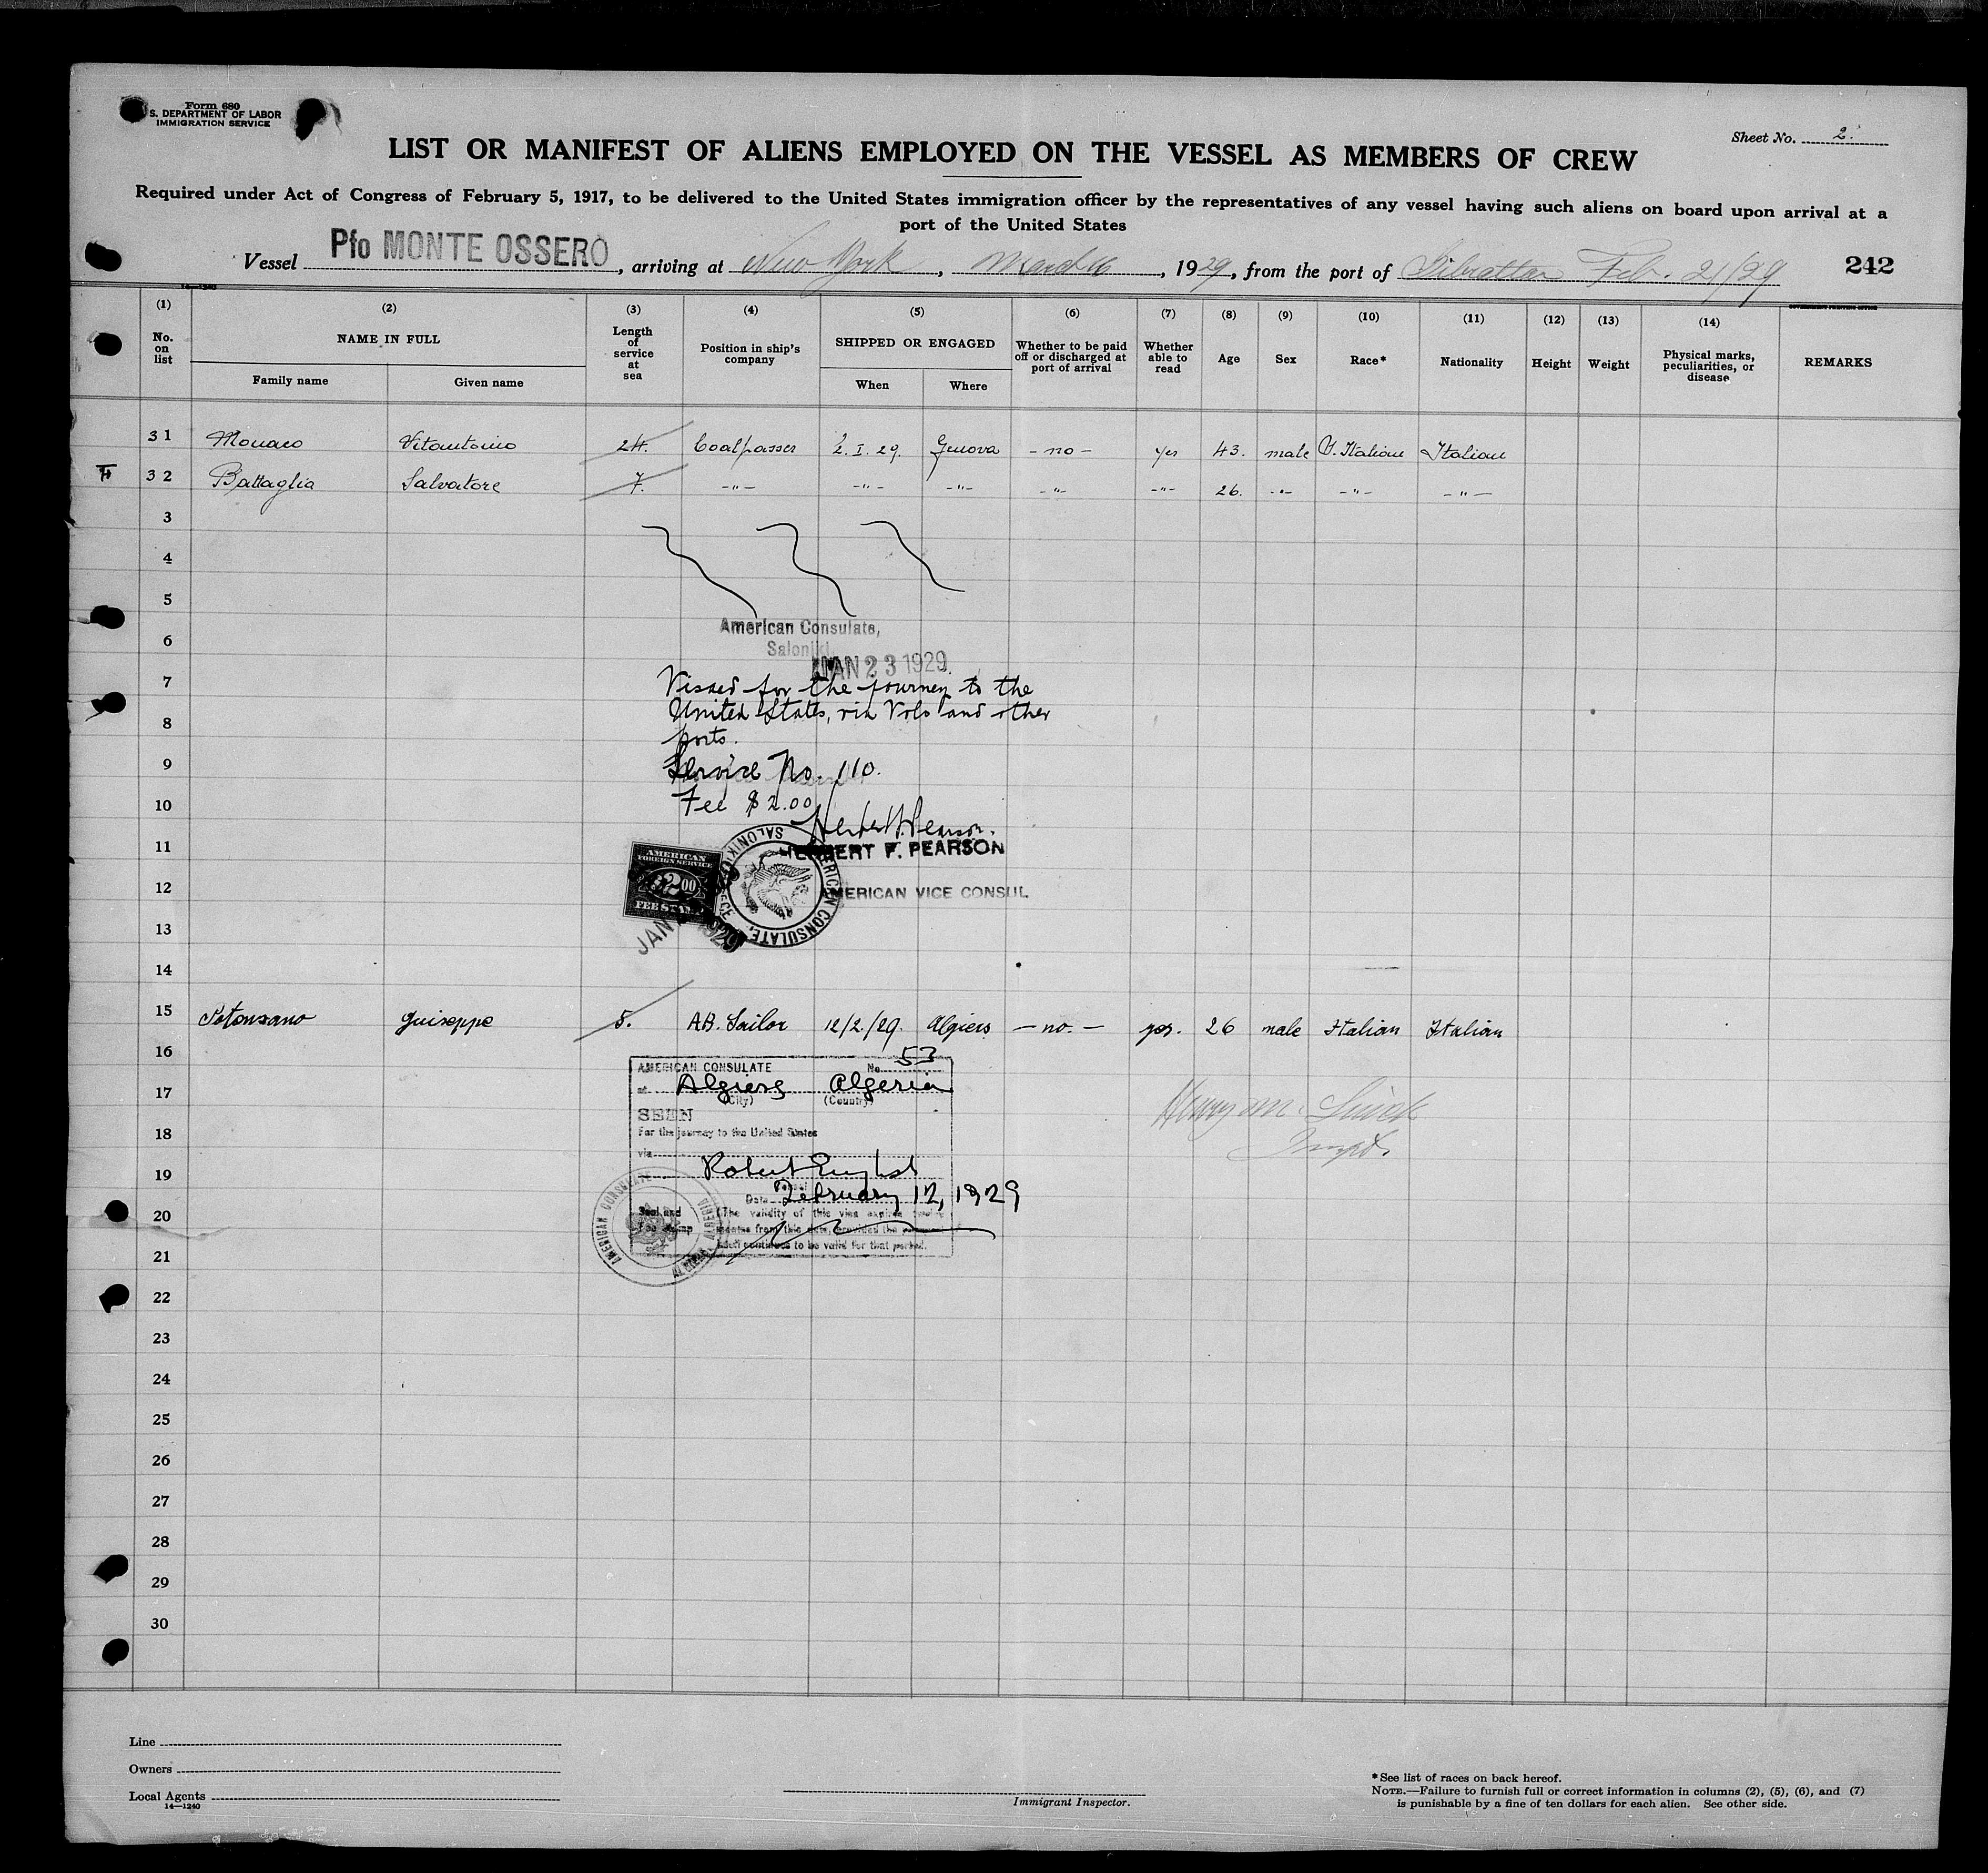 Form 680
S. DEPARTMENT OF LABOR
IMMIGRATION SERVICE
Sheet No. 2.
LIST OR MANIFEST OF ALIENS EMPLOYED ON THE VESSEL AS MEMBERS OF CREW
Required under Act of Congress of February 5, 1917, to be delivered to the United States immigration officer by the representatives of any vessel having such aliens on board upon arrival at a
port of the United States
Vessel Pfo MONTE OSSERO, arriving at New York, March 16, 1929, from the port of Gibraltar Feb. 21/29
242
(1) (2) (3) (4) (5) (6) (7) (8) (9) (10) (11) (12) (13) (14)
No. on list NAME IN FULL Length of service at sea Position in ship's company SHIPPED OR ENGAGED Whether to be paid off or discharged at port of arrival Whether able to read Age Sex Race* Nationality Height Weight Physical marks, peculiarities, or disease REMARKS
Family name Given name When Where
31 Monaco Vitantonio 24. Coalpasser 2.I.29. Genova - no - yes 43. male S. Italian Italian
32 Battaglia Salvatore 7. -"- -"- -"- -"- -"- 26. -"- -"- -"-
3
4
5
American Consulate,
6
Saloniki
JAN 23 1929
7
Visaed for the journey to the
United States, via Volo and other
8
ports.
9
Service No. 110.
10
Fee $2.00
11
HERBERT F. PEARSON
AMERICAN FOREIGN SERVICE
$2.00
FEE STAMP
AMERICAN CONSULATE, SALONIKI, GREECE
12
AMERICAN VICE CONSUL
13
JAN 1929
14
15 Potonzano Guiseppe 5. AB. Sailor 12/2./29. Algiers - no. - yes. 26 male Italian Italian
16
AMERICAN CONSULATE No. 53
at Algiers Algeria
17
(City) (Country)
SEEN
18
For the journey to the United States
via
19
Robert English
Date February 12, 1929
20
Seal and (The validity of this visa expires twelve
Fee stamp months from this date, provided the passport
itself continues to be valid for that period.
AMERICAN CONSULATE ALGIERS, ALGERIA
Henry M.
Inspt.
21
22
23
24
25
26
27
28
29
30
Line
Owners
Local Agents
14—1240
Immigrant Inspector.
*See list of races on back hereof.
NOTE.—Failure to furnish full or correct information in columns (2), (5), (6), and (7)
is punishable by a fine of ten dollars for each alien. See other side.